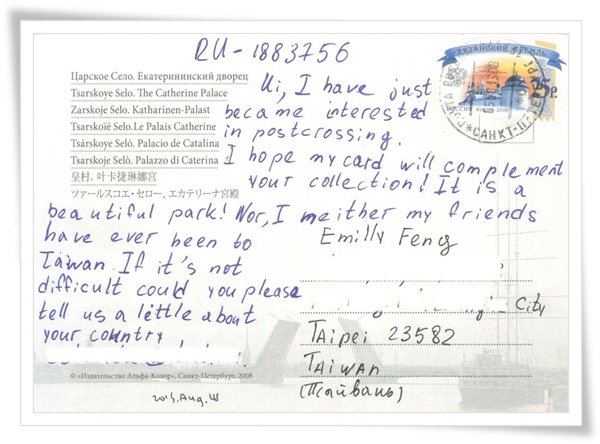 RU-1883756
Царское Село. Екатерининский дворец
Tsarskoye Selo. The Catherine Palace
Zarskoje Selo. Katharinen-Palast
Tsarskoïé Selo. Le Palais Catherine
Tsárskoye Seló. Palacio de Catalina
Tsarskoje Selo. Palazzo di Caterina
皇村。叶卡捷琳娜宫
ツァールスコエ・セロー、エカテリーナ宮殿
РЯЗАНСКИЙ КРЕМЛЬ
РОССИЯ ROSSIJA 2009
25 р
САНКТ-ПЕТЕР
Hi, I have just
became interested
in postcrossing.
I hope my card will complement
your collection! It is a
beautiful park! Nor, I neither my friends
have ever been to
Taiwan. If it's not
difficult could you please
tell us a little about
your country
Emilly Feng
City
TAipei 23582
TAiwan
(Тайвань)
© «Издательство Альфа-Колор», Санкт-Петербург, 2008
2015. Aug. W